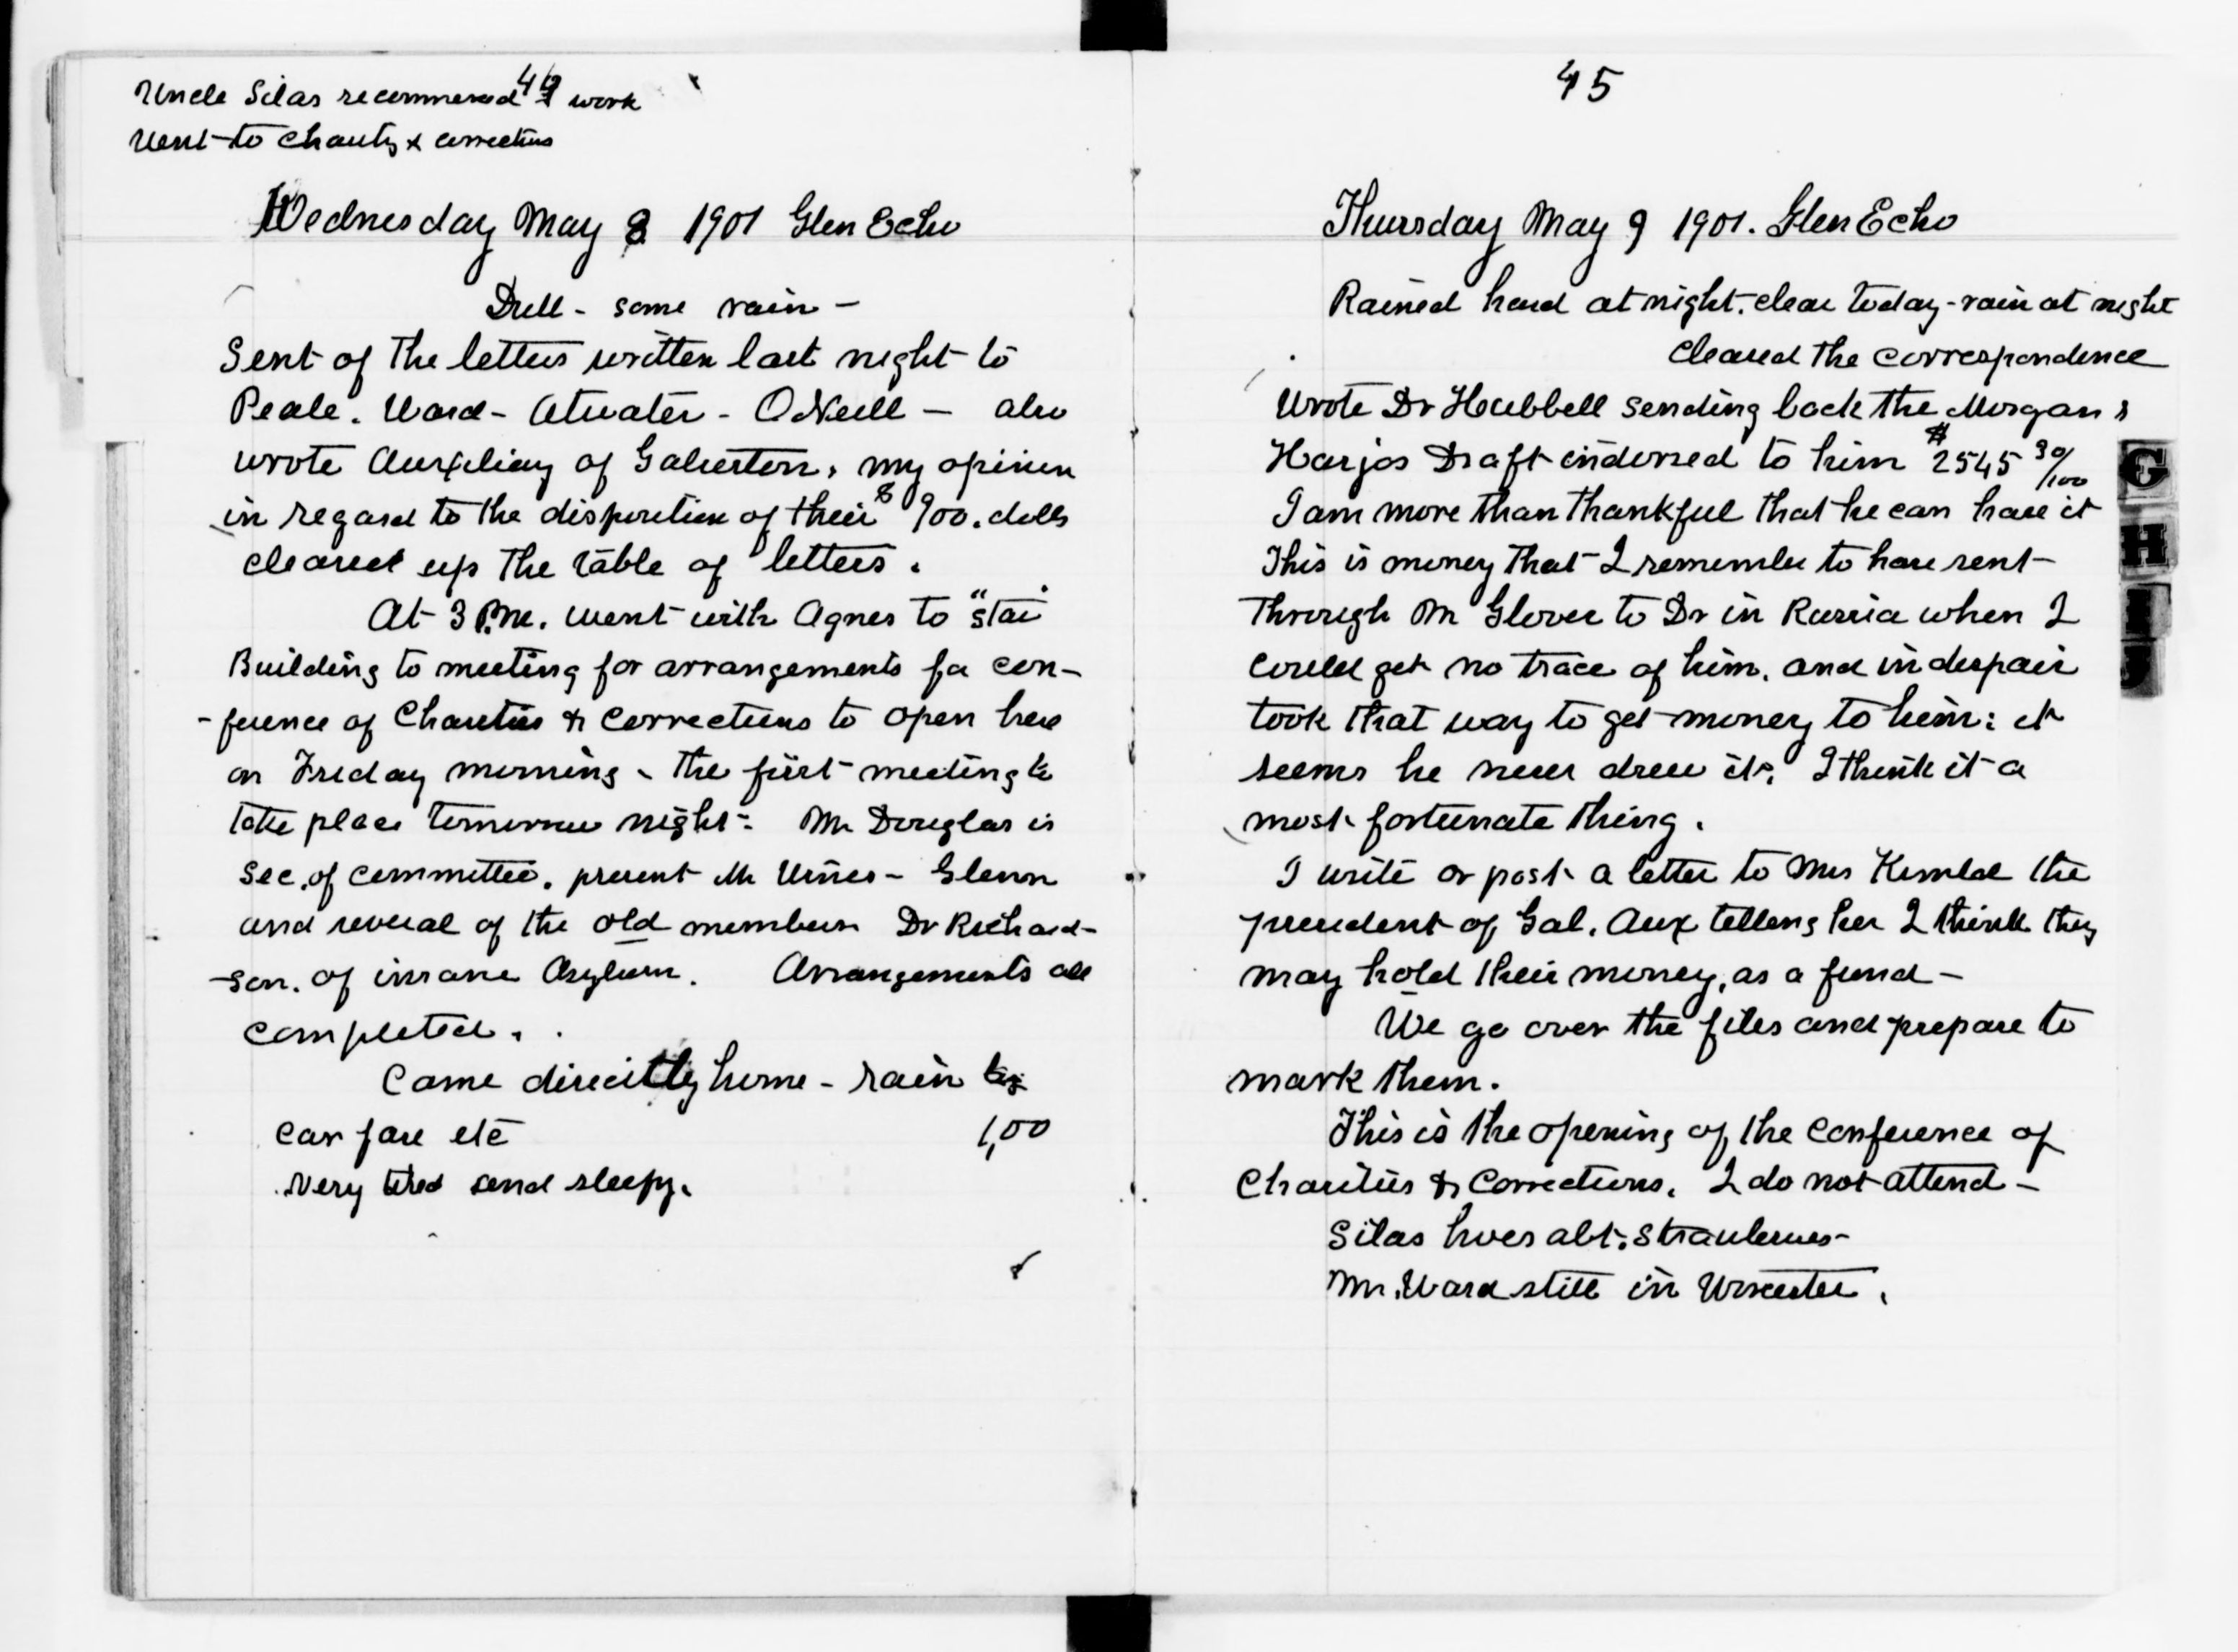 44
Uncle Silas recommenced work
Went to Charity & corrections
Wednesday May 8 1901 Glen Echo
Dull - some rain -
Sent of the letters written last night to
Peale. Ward - Atwater - ONeill - also
wrote Auxiliary of Galveston, my opinion
in regard to the disposition of their $900. dolls
cleared up the table of letters.
At 3 P.M. went with Agnes to "Star"
Building to meeting for arrangements for con-
-ference of Charities & Corrections to open here
on Friday morning - the first meeting to
take place tomorrow night - Mr Douglas is
Sec. of committee. present Mr - Glenn
and several of the old members Dr Richard-
-son. of insane Asylum. Arrangements all
completed.
Came directly home - rain
Car fare etc 1,00
Very tired and sleepy.
45
Thursday May 9 1901. Glen Echo
Rained hard at night. clear today - rain at night
Cleared the correspondence
Wrote Dr Hubbell sending back the Morgan &
Harjes Draft indorsed to him $2545 30/100
I am more than thankful that he can have it
This is money that I remember to have sent
through Mr Glover to Dr in Russia when I
could get no trace of him. and in despair
took that way to get money to him: it
seems he never drew it. I think it a
most fortunate thing.
I write or post a letter to Mrs the
president of Gal. Aux telling her I think they
may hold their money, as a fund -
We go over the files and prepare to
mark them.
This is the opening of the Conference of
Charities & Corrections. I do not attend -
Silas hoes abt. Strauberries -
Mr. Ward still in Worcester.
G
H
I
J